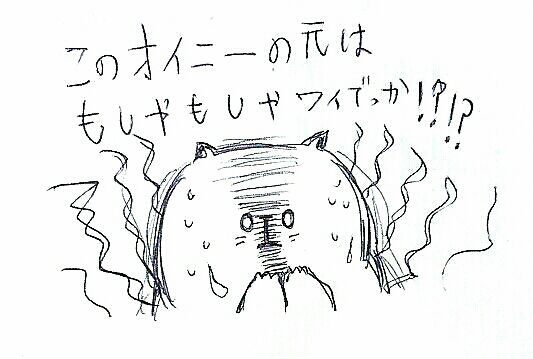 このオイニーの元は
もしやもしやワイでっか!?!?